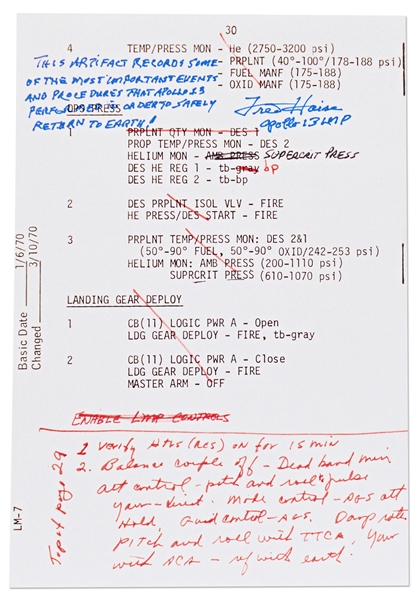 30
4 TEMP/PRESS MON - He (2750-3200 psi)
THIS ARTIFACT RECORDS SOME - PRPLNT (40°-100°/178-188 psi)
OF THE MOST IMPORTANT EVENTS - FUEL MANF (175-188)
AND PROCEDURES THAT APOLLO 13 - OXID MANF (175-188)
PERFORMED IN ORDER TO SAFELY
RETURN TO EARTH!
Fred Haise
Apollo 13 LMP
DPS PRESS
1 PRPLNT QTY MON - DES 1
PROP TEMP/PRESS MON - DES 2
HELIUM MON - AMB PRESS SUPERCRIT PRESS
DES HE REG 1 - tb-gray bp
DES HE REG 2 - tb-bp
2 DES PRPLNT ISOL VLV - FIRE
HE PRESS/DES START - FIRE
3 PRPLNT TEMP/PRESS MON: DES 2&1
(50°-90° FUEL, 50°-90° OXID/242-253 psi)
HELIUM MON: AMB PRESS (200-1110 psi)
SUPRCRIT PRESS (610-1070 psi)
LANDING GEAR DEPLOY
1 CB(11) LOGIC PWR A - Open
LDG GEAR DEPLOY - FIRE, tb-gray
2 CB(11) LOGIC PWR A - Close
LDG GEAR DEPLOY - FIRE
MASTER ARM - OFF
ENABLE LMP CONTROLS
1 Verify on for 15 min
2. Balance couple off - Dead band min
att control - pitch and roll pulse
yaw - Mode control - AGS att
Hold, Guid control - AGS. Damp rates
Pitch and roll with TTCA, Yaw
with ACA - with earth.
Top of page 29
Basic Date 1/6/70
Changed 3/10/70
LM-7